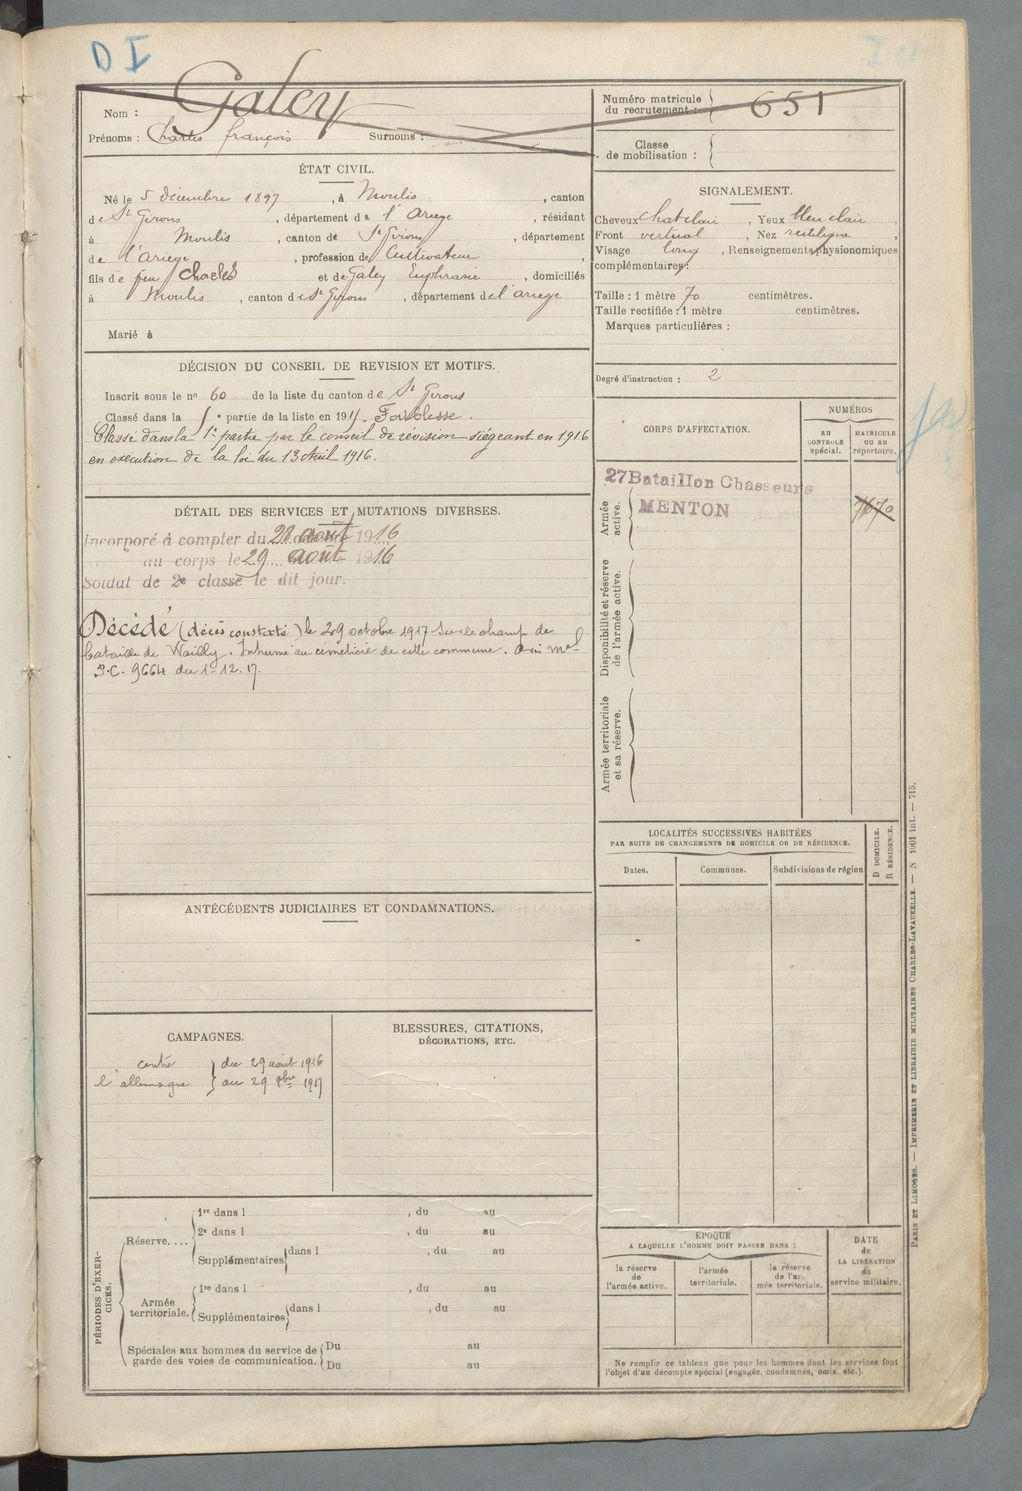 D I
Nom : Galey
Prénoms : Charles françois Surnoms :
Numéro matricule
du recrutement : 651
Classe
de mobilisation :
ÉTAT CIVIL.
Né le 5 décembre 1897, à Moulis, canton
de St Girons, département de l'Ariege, résidant
à Moulis, canton de St Girons, département
de l'Ariege, profession de Cultivateur,
fils de feu Charles et de Galey Euphrasie, domiciliés
à Moulis, canton de St Girons, département de l'ariege
Marié à
SIGNALEMENT.
Cheveux chat clair, Yeux bleu clair,
Front vertical, Nez rectiligne,
Visage long, Renseignements physionomiques
complémentaires :
Taille : 1 mètre 70 centimètres.
Taille rectifiée : 1 mètre centimètres.
Marques particulières :
Degré d'instruction : 2
DÉCISION DU CONSEIL DE REVISION ET MOTIFS.
Inscrit sous le nº 60 de la liste du canton de St Girons
Classé dans la 5e partie de la liste en 191 Faiblesse.
Classé dans la 1e partie par le conseil de révision siégeant en 1916
en execution de la loi du 13 Avril 1916.
CORPS D'AFFECTATION.
NUMÉROS
AU
CONTROLE
spécial.
MATRICULE
OU AU
répertoire.
Armée
active.
27 Bataillon Chasseurs
MENTON
Disponibilité et réserve
de l'armée active.
Armée territoriale
et sa réserve.
DÉTAIL DES SERVICES ET MUTATIONS DIVERSES.
Incorporé à compter du 28 août 1916
au corps le 29 août 1916
Soldat de 2e classe le dit jour.
Décédé (décès constaté) le 29 octobre 1917 sur le champ de
bataille de Wailly. Inhumé au cimetière de cette commune. Avis mel
S.C. 9664 du 1-12.17.
LOCALITÉS SUCCESSIVES HABITÉES
PAR SUITE DE CHANGEMENTS DE DOMICILE OU DE RÉSIDENCE.
Dates. Communes. Subdivisions de région
D DOMICILE.
R RÉSIDENCE.
ANTÉCÉDENTS JUDICIAIRES ET CONDAMNATIONS.
CAMPAGNES.
contre
l'allemagne
du 29 août 1916
au 29 8bre 1917
BLESSURES, CITATIONS,
DÉCORATIONS, ETC.
PÉRIODES D'EXER-
CICES.
Réserve....
1re dans l , du au
2e dans l , du au
Supplémentaires dans l , du au
Armée
territoriale.
1re dans l , du au
Supplémentaires dans l , du au
Spéciales aux hommes du service de
garde des voies de communication.
Du au
Du au
ÉPOQUE
A LAQUELLE L'HOMME DOIT PASSER DANS :
la réserve
de
l'armée active.
l'armée
territoriale.
la réserve
de l'ar-
mée territoriale.
DATE
de
LA LIBÉRATION
du
service militaire.
Ne remplir ce tableau que pour les hommes dont les services font
l'objet d'un décompte spécial (engagés, condamnés, omis, etc.).
PARIS ET LIMOGES. — IMPRIMERIE ET LIBRAIRIE MILITAIRES CHARLES-LAVAUZELLE. — N 1901 int. — 715.